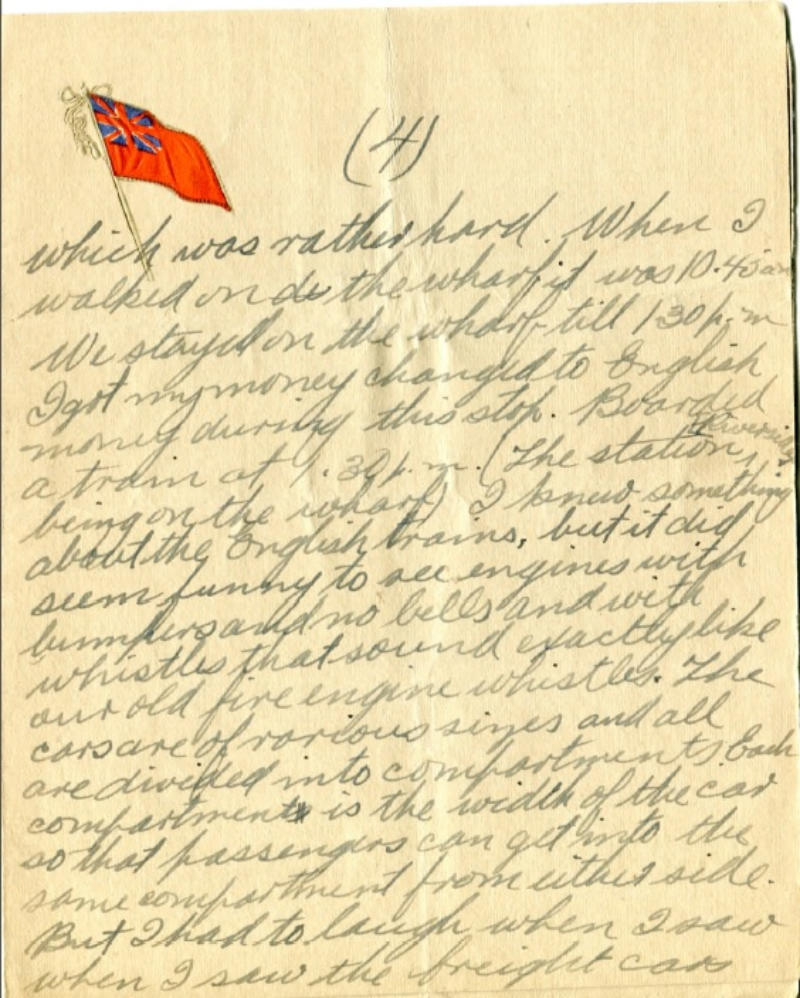 (4)
which was rather hard. When I
walked on the wharf it was 10.45 am
We stayed on the wharf till 1 30 p.m
I got my money changed to English
money during this stop. Boarded
a train at 1.30 p.m. (The station, Riverside
being on the wharf) I knew something
about the English trains, but it did
seem funny to see engines with
bumpers and no bells and with
whistles that sound exactly like
our old fire engine whistles. The
cars are of various sizes and all
are divided into compartments Each
compartment is the width of the car
so that passengers can get into the
same compartment from either side.
But I had to laugh when I saw
when I saw the freight cars